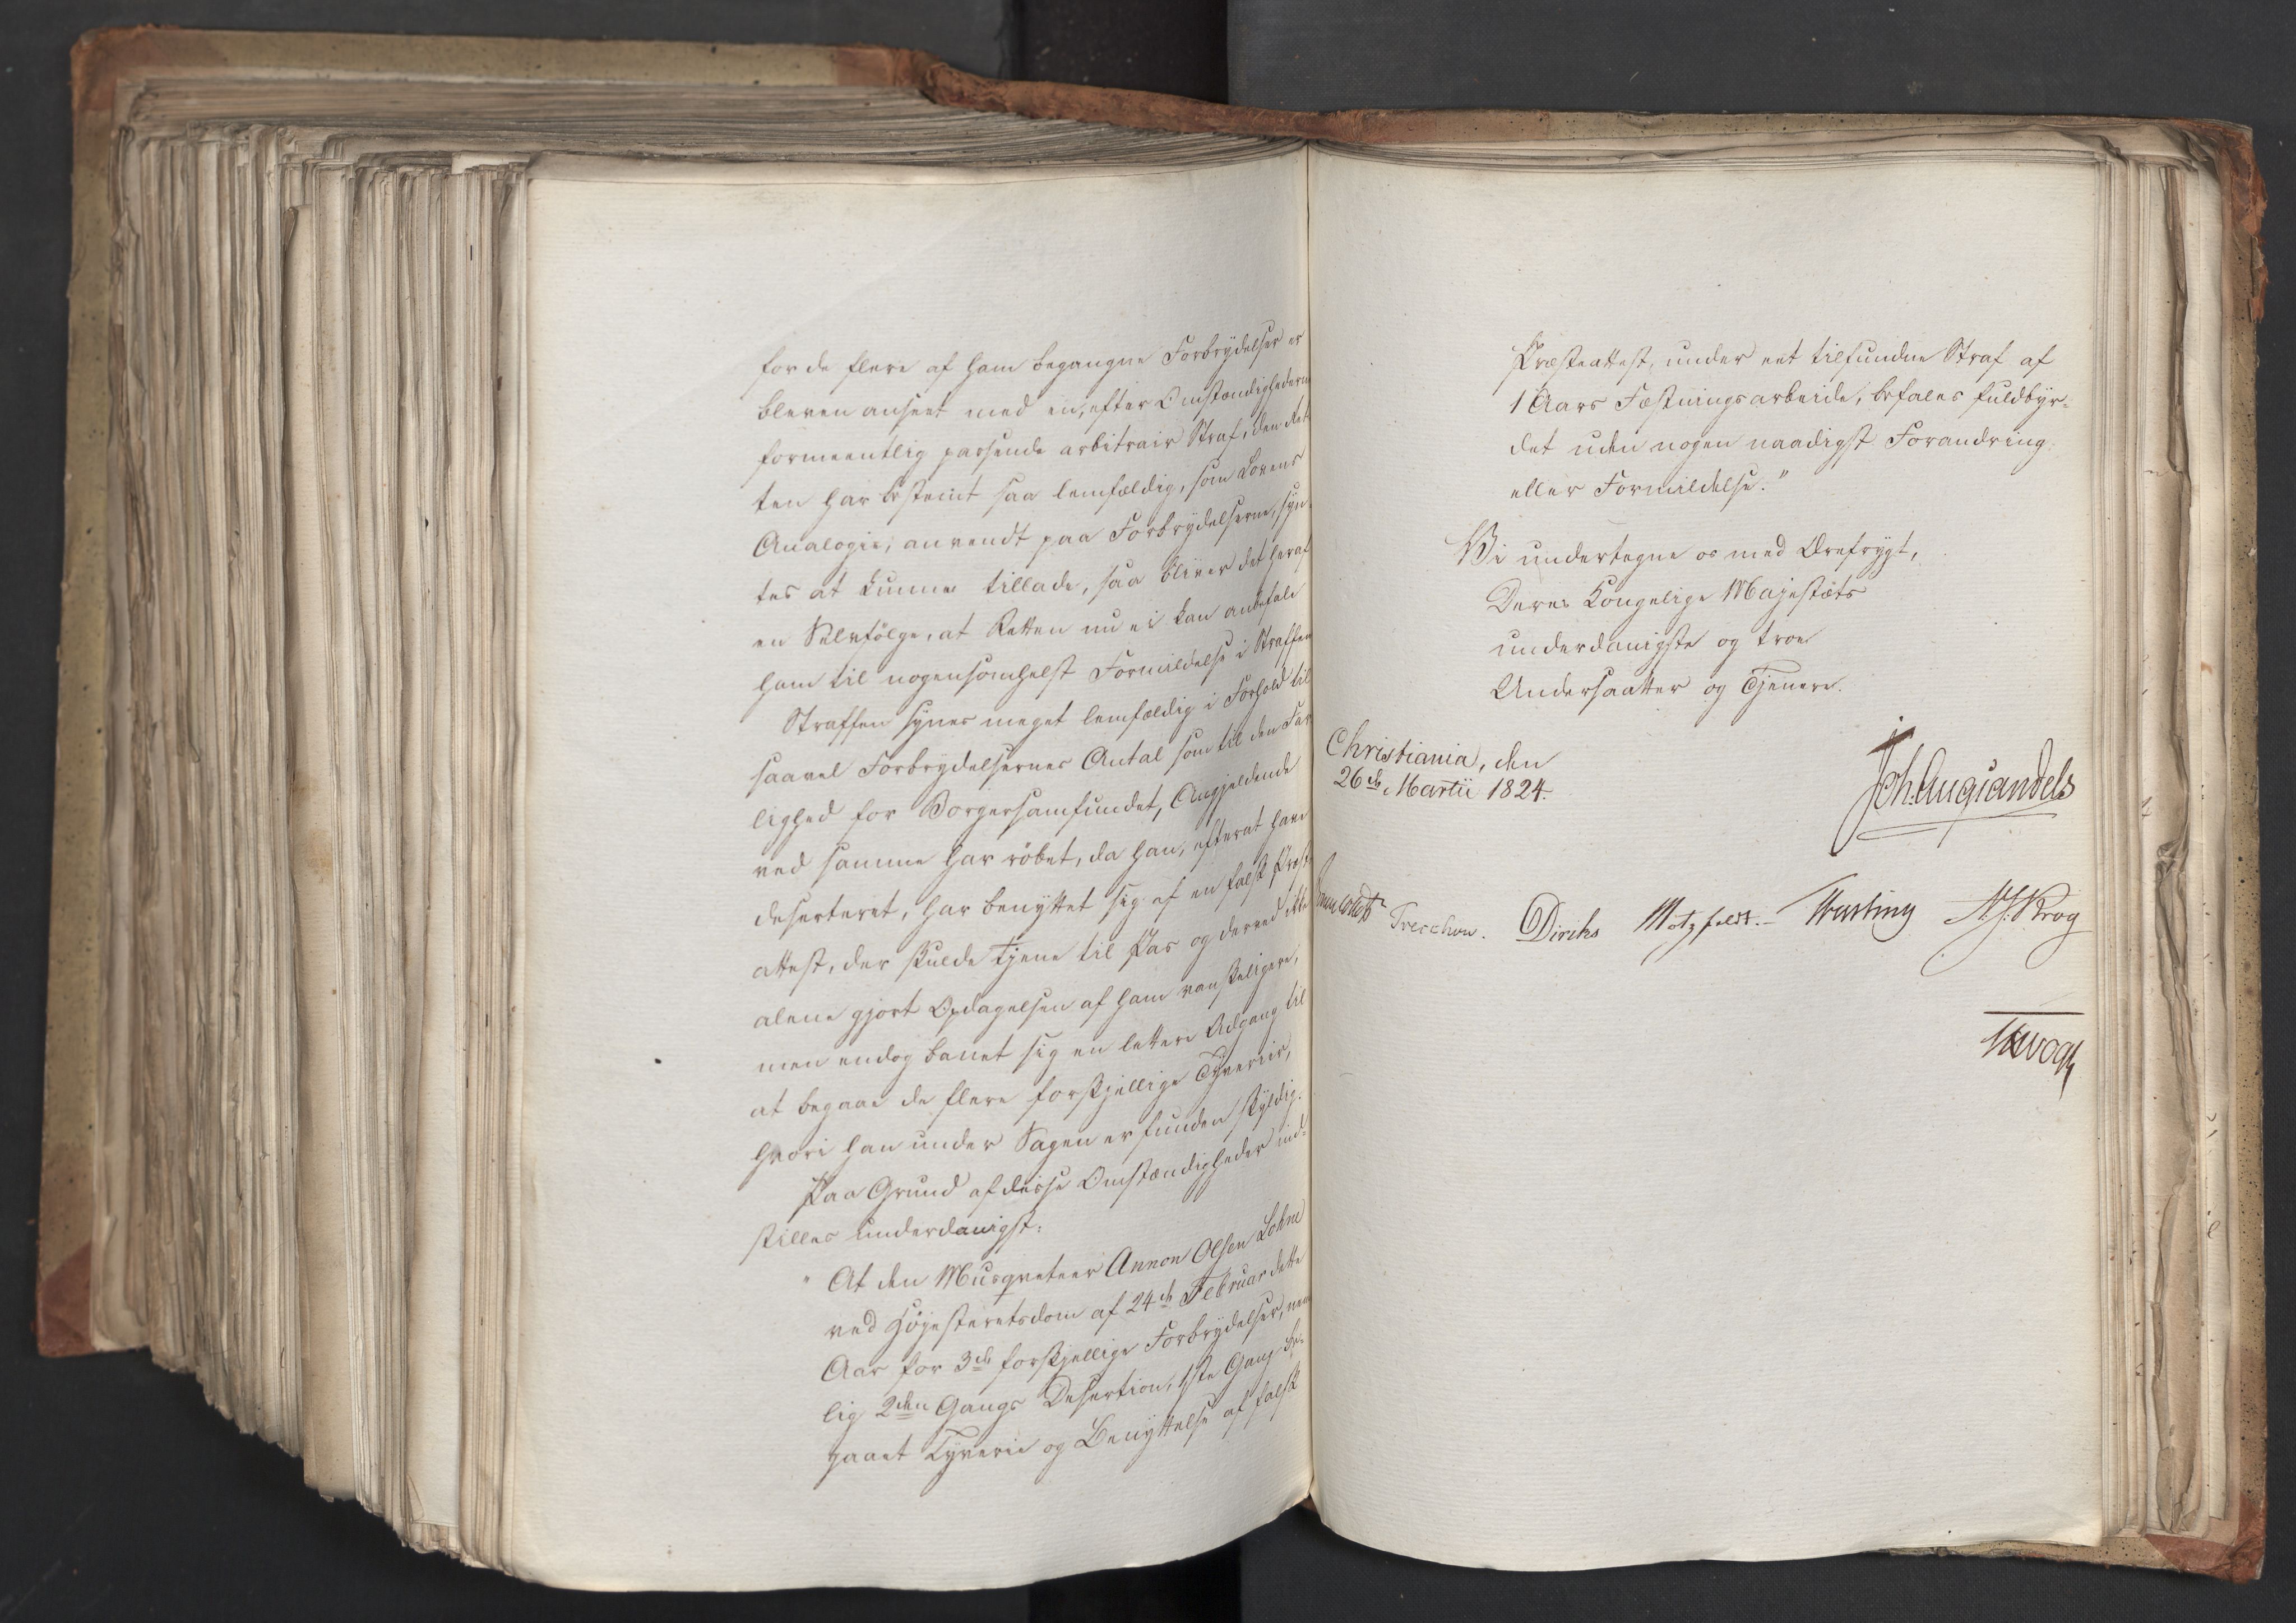 for de flere af ham begangne Forbrydelser er
bleven anseet med en, efter Omstændighederne
formeentlig passende arbitrair Straf, den Ret-
ten har bestemt saa lemfældig, som Lovens
Analogie, anvendt paa Forbrydelserne, syn-
tes at kunne tillade, saa bliver det heraf
en Selvfølge, at Retten nu ei kan anbefale
ham til nogensomhelst Formildelse i Straffen
Straffen synes meget lemfældig i Forhold til
saavel Forbrydelsernes Antal som til den Far-
lighed for Borgersamfundet, Angjeldende
ved samme har røbet, da han, efterat have
deserteret, har benyttet sig af en falsk Præste-
attest, der skulde tjene til Pas og derved ikke
alene gjort Opdagelsen af ham vanskeligere,
men endog banet sig en lettere Adgang til
at begaae de flere forskjellige Tyverier,
hvori han under Sagen er funden skyldig.
Paa Grund af disse Omstændigheder ind-
stilles underdanigst:
"At den Musqveteer Annon Olsen Lohne
ved Høiesteretsdom af 24de Februar dette
Aar for 3de forskjellige Forbrydelser, nem-
lig 2den Gangs Desertion, 1ste Gang be-
gaaet Tyverie og Benyttelse af falsk
Præsteattest, under eet tilfundne Straf af
1 Aars Fæstningsarbeide, befales fuldbyr-
det uden nogen naadigst Forandring
eller Formildelse."
Vi undertegne os med Ærefrygt,
Deres Kongelige Majestæts
underdanigste og troe
Undersaatter og Tjenere.
Christiania, den
26de Martii 1824.
Joh. Aug. Sandels
Jonas Collett Treschow. Diriks Motzfeldt. Fasting A. J. Krog